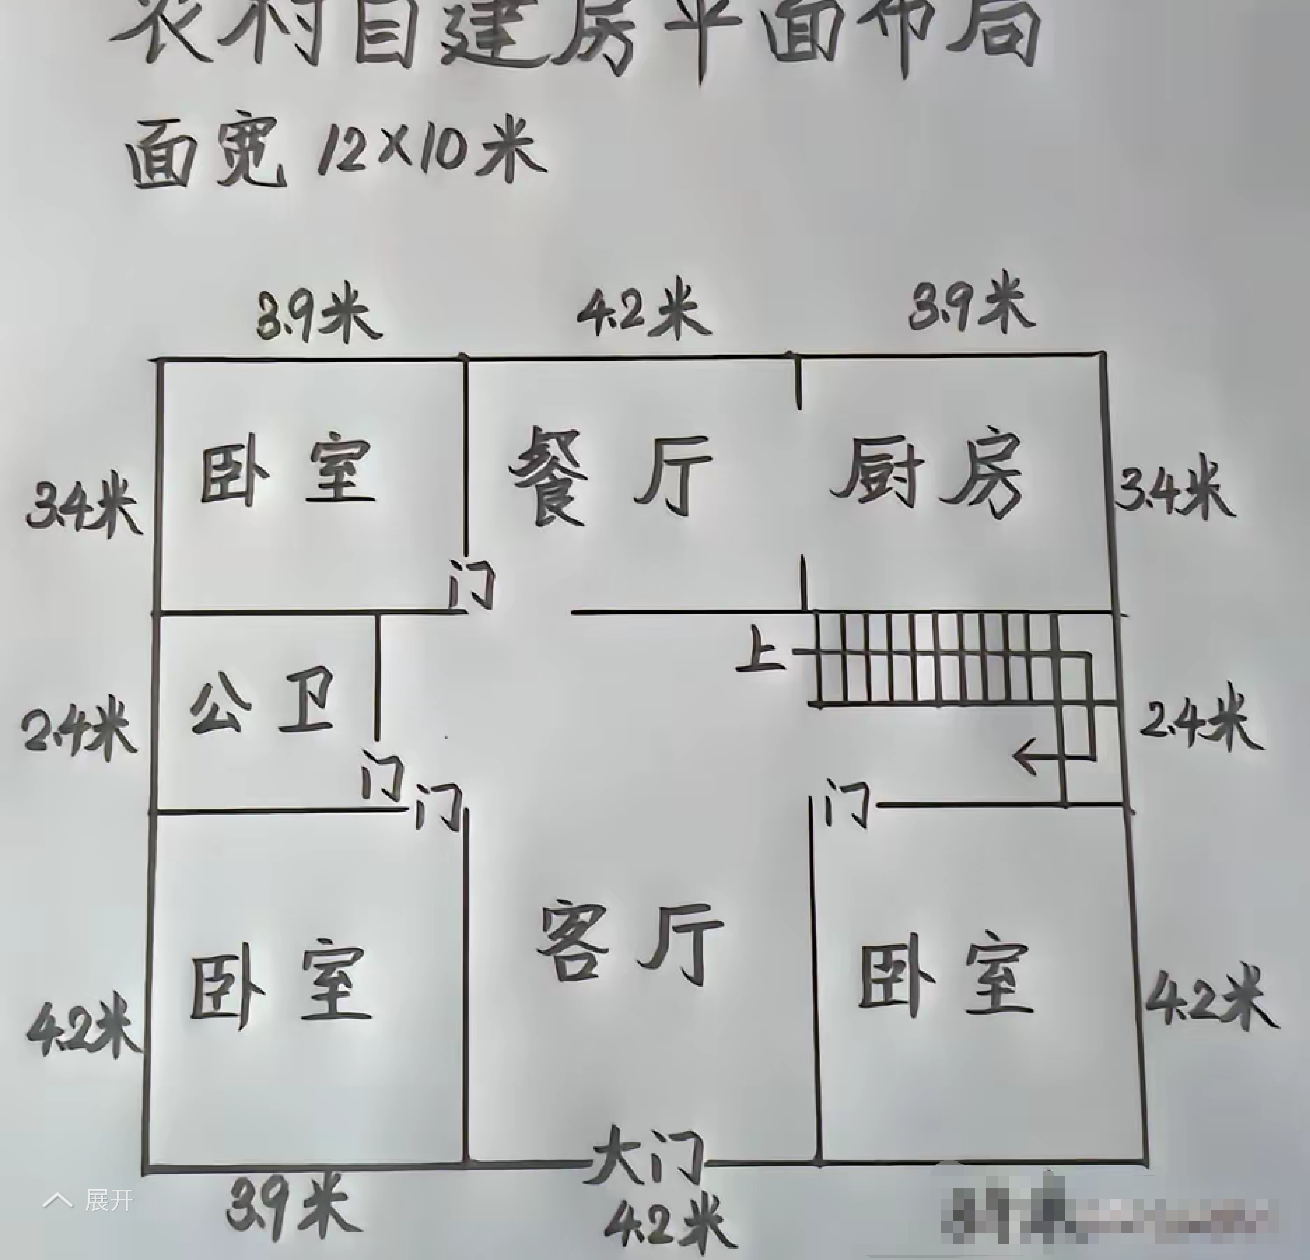 农村自建房平面布局
面宽 12×10米
3.9米 4.2米 3.9米
卧室 餐厅 厨房
3.4米 3.4米
门
上
公卫
2.4米 2.4米
门 门 门
客厅
卧室 卧室
4.2米 4.2米
大门
3.9米 4.2米
展开